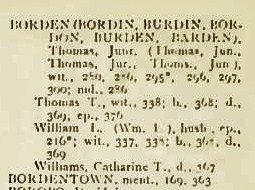 BORDEN (BORDIN, BURDIN, BOR-
DON, BURDEN, BARDEN),
Thomas, Junr. (Thomas, Jun.,
Thomas, Jur., Thoms., Jun.),
wit., 280, 286, 295*, 296, 297,
300; md., 286
Thomas T., wit., 338; b., 368; d.,
369, ep., 376
William L. (Wm. L.), husb., ep.,
216*; wit., 337, 338; b., d.,
369
Williams, Catharine T., d., 367
BORDENTOWN, ment., 169, 363